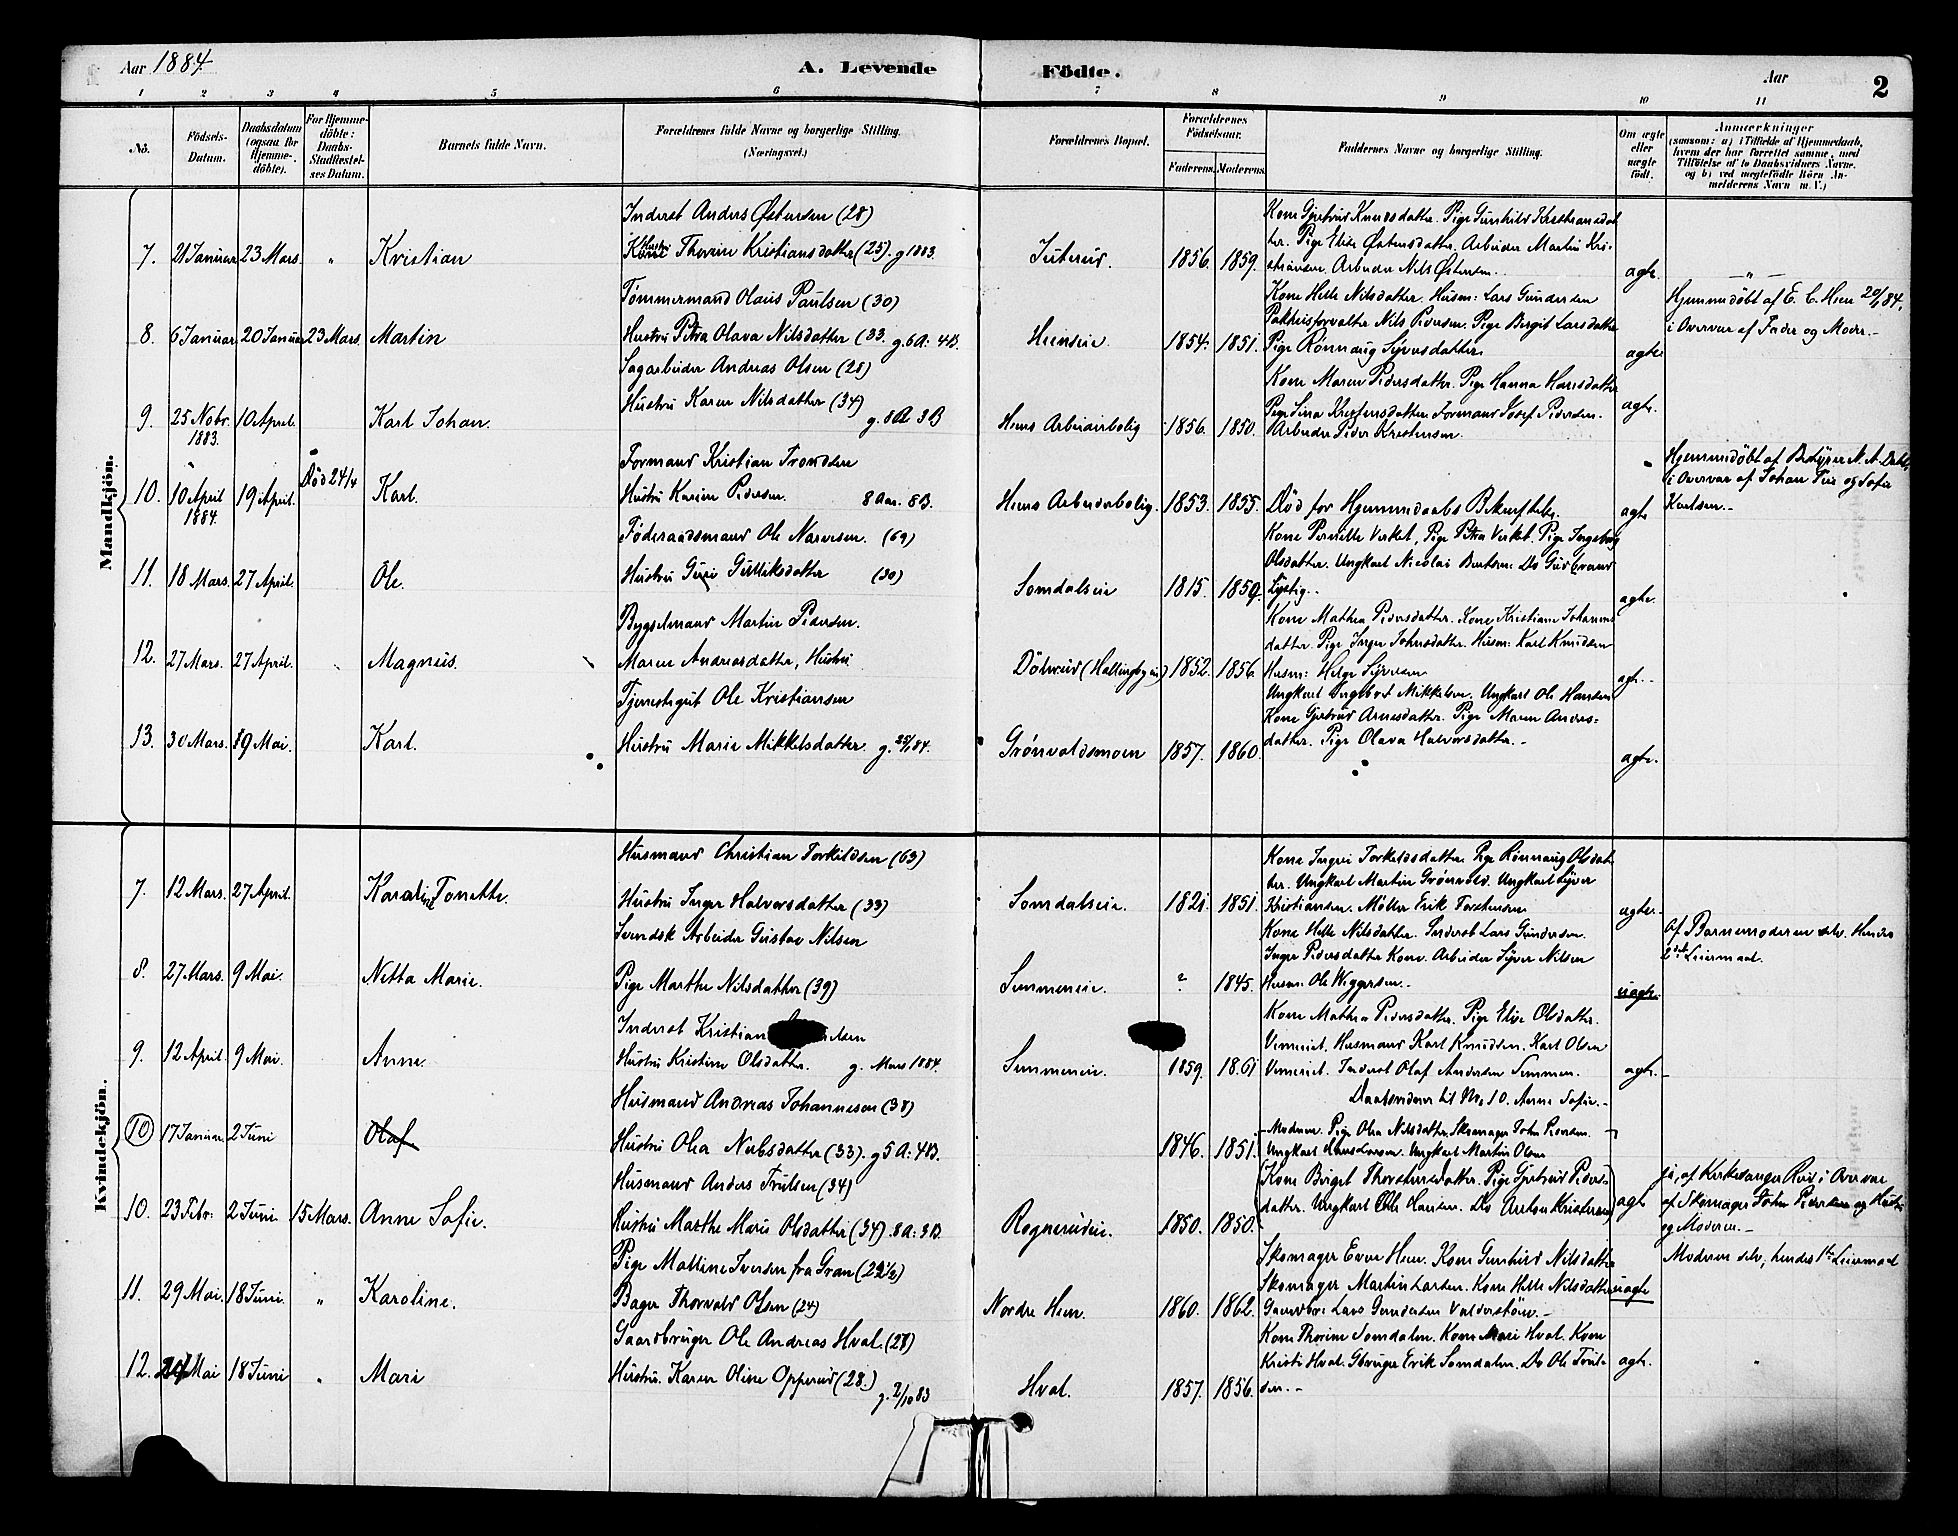 Aar 1884
A. Levende
Födte.
Aar
2
1 2 3 4 5 6 7 8 9 10 11
No.
Födsels-Datum.
Daabsdatum (ogsaa for Hjemmedöbte).
For Hjemmedöbte: Daabs-Stadfæstelses Datum.
Barnets fulde Navn.
Forældrenes fulde Navne og borgerlige Stilling. (Næringsvei.)
Forældrenes Bopæl.
Forældrenes Födselsaar.
Faderens. Moderens.
Faddernes Navne og borgerlige Stilling.
Om ægte eller uægte födt.
Anmærkninger
(saasom: a) i Tilfælde af Hjemmedaab, hvem der har forrettet samme, med Tilföielse af to Daabsvidners Navne. og b) ved uægtefödte Börn Anmelderens Navn m. V.)
Mandkjön.
Inderst Anders Østensen (28)
Kone Gjertrud Knudsdatter. Pige Gunhild Kristiansdat
ter. Pige Elise Østensdatter. Arbeider Martin Kri-
7. 21 Januar 23 Mars. " Kristian
Hustru Thorine Kristiansdatter (25). g 1883.
1856. 1859.
stiansen. Arbeider Nils Østensen.
ægte.
Tømmermand Olaus Paulsen (30)
Kone Helle Nilsdatter. Husm: Lars Gundersen
Hjemmedøbt af E. C. Hen 20/1 84.
Pakhusforvalter Nils Pedersen. Pige Bergit Larsdatter
i Overvær af Fader og Moder.-
8. 6 Januar 20 Januar 23 Mars. Martin
Hustru Petra Olava Nilsdatter (33. g. 6 A: 4 B.
Henseie.
1854. 1851.
Pige Rønnaug Syversdatter.
ægte.
Sagarbeider Andreas Olsen (28)
Kone Maren Pedersdatter. Pige Hanna Hansdatter
9. 25 Nobr. 1883. 10 April. Karl Johan.
Hustru Karen Nilsdatter (34)
g. 8 A 3 B
Hens Arbeiderbolig
1856. 1850.
Formand Josef Pedersen.
Arbeider Peder Kristensen.
ægte.
Formand Kristian Trondsen
Hjemmedøbt af
i Overvær af Johan
og Sofie
Karlsen.-
10. 10 April 1884. 19 April. Død 24/4 Karl.
Hustru Karine Pedersen. 8 Aar. 8 B.
Hens Arbeiderbolig.
1853. 1855.
Død før Hjemmedaabs Bekræftelse.
ægte
Føderaadsmand Ole Narvesen. (69)
Kone Pernille Verket, Pige Petra Verket. Pige Ingeborg
Olsdatter. Ungkarl Nicolai Berntsen. Do Gudbrand
11. 18 Mars. 27 April. Ole.
Hustru Guri Gulliksdatter (30)
Somdalseie
1815. 1859.
Lystig..
ægte.
Bygselmand Martin Pedersen.
Kone Mathea Pedersdatter. Kone Kristiane Johannes
datter. Pige Inger Johnsdatter. Husm: Karl Knudsen
12. 27 Mars. 27 April. Magnus.
Maren Andreasdatter, Hustru
(Hallingbyeie)
1852. 1856.
Husm: Helge Syversen
ægte.
Tjenestegut Ole Kristiansen
Ungkarl Ingebret Mikkelsen. Ungkarl Ole Hansen
Kone Gjertrud Arnesdatter. Pige Maren Andreas-
13. 30 Mars. 19 Mai. Karl.
Hustru Marie Mikkelsdatter. g. 25/1 84.
Grønvoldsmoen
1857. 1860.
datter. Pige Olava Halvorsdatter.-
ægte.
Kvindekjön.
Husmand Christian Torkildsen (63)
Kone Ingri Torkeldsdatter. Pige Rønnaug Olsdat
ter. Ungkarl Martin Grønvold. Ungkarl Syver
7. 12 Mars. 27 April. Karoline Tonette.
Hustru Inger Halvorsdatter (33)
Somdalseie.
1821. 1851.
Kristiansen. Møller Erik Torstensen
ægte.
Svendsk Arbeider Gustav Nilsen
Kone Helle Nilsdatter. Inderst Lars Gundersen.
Af Barnemoderen selv. Hendes
2det Leiermaal.
Inger Pedersdatter Kone. Arbeider Syver Nilsen
8. 27 Mars. 9 Mai. Netta Marie.
Pige Marthe Nilsdatter (39)
Semmeneie.
? 1845.
Husm: Ole Wiggersen.-
uægte.
Inderst Kristian
Kone Mathea Pedersdatter. Pige Elise Olsdatter.
Husmand Karl Knudsen. Karl Olsen
9. 12 April. 9 Mai. Anne.
Hustru Kristine Olsdatter. g. Mars 1884.
Semmeneie.
1859. 1861
Inderst Olaf Andersen Semmen.
ægte.
Husmand Andreas Johannesen (38)
Daabsvidner til No 10. Anne Sofie.-
10 17 Januar 2 Juni Olaf
Moderen. Pige Olea Nilsdatter. Skomager John Pedersen.
Hustru Olia Nubsdatter (33). g 5 A: 4 B.
1846. 1851.
Ungkarl Martin Olsen
Husmand Anders Trulsen (34)
Kone Birget Thorstensdatter. Pige Gjertrud Peders-
ja, af Kirkesanger Rud i Overvær
af Skomager John Pedersen og Hustru
og Moderen.-
10. 23 Febr. 2 Juni. 15 Mars. Anne Sofie.
Hustru Marthe Marie Olsdatter (34). 8 A: 3 B.
Rognerudeie.
1850. 1850.
datter. Ungkarl Ole Hansen. Do Anton Kristensen
ægte
Pige Mattine Iversen fra Gran (22 1/2)
Skomager Even Hen. Kone Gunhild Nilsdatter
Moderen selv, hendes 1ste Leiermaal
11. 29 Mai. 18 Juni. " Karoline.
Bager Thorvald Olsen (24)
Nordre Hen.
1860. 1862.
Skomager Martin Larsen. Kone Helle Nilsdatter
Lars Gundersen
uægte
Gaardbruger Ole Andreas Hval. (28)
Kone Thorine Somdalen. Kone Mari Hval. Kone
12. 24 Mai 18 Juni " Mari
Hustru. Karen Oline Opperud (28.)
g. 2/10 83
Hval.
1857. 1856.
Kristi Hval. Gbruger Erik Somdalen. Do Ole Trul-
sen.-
ægte.